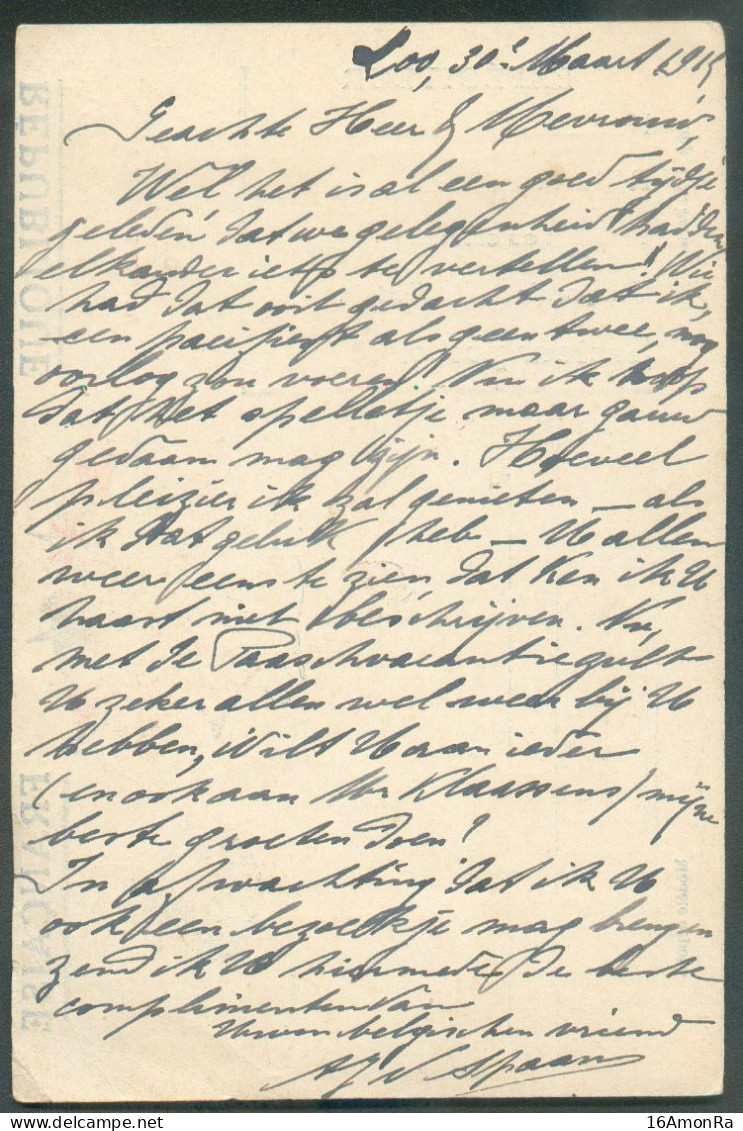 Loo, 30e Maart 1915
Geachte Heer & Mevrouw,
Wel het is al een goed tijdje
geleden dat we gelegenheid hadden
elkander iets te vertellen! Wie
had dat ooit gedacht dat ik,
een pacifist als geen twee, nog
oorlog zou voeren! Nu ik hoop
dat het spelletje maar gauw
gedaan mag zijn. Hoeveel
pleizier ik zal genieten – als
ik dat geluk heb – U allen
weer eens te zien, dat kan ik U
haast niet beschrijven. Nu,
met de Paaschvacantie zult
U zeker allen wel weer bij U
hebben, Wilt U aan ieder
(en ook aan Mr Klaassens) mijne
beste groeten doen?
In afwachting dat ik U
ook een bezoekje mag brengen
zend ik U hiermede de beste
complimenten van
Uwen belgischen vriend
Spaan
REPUBLIQUE
FRANÇAISE
16AmonRa